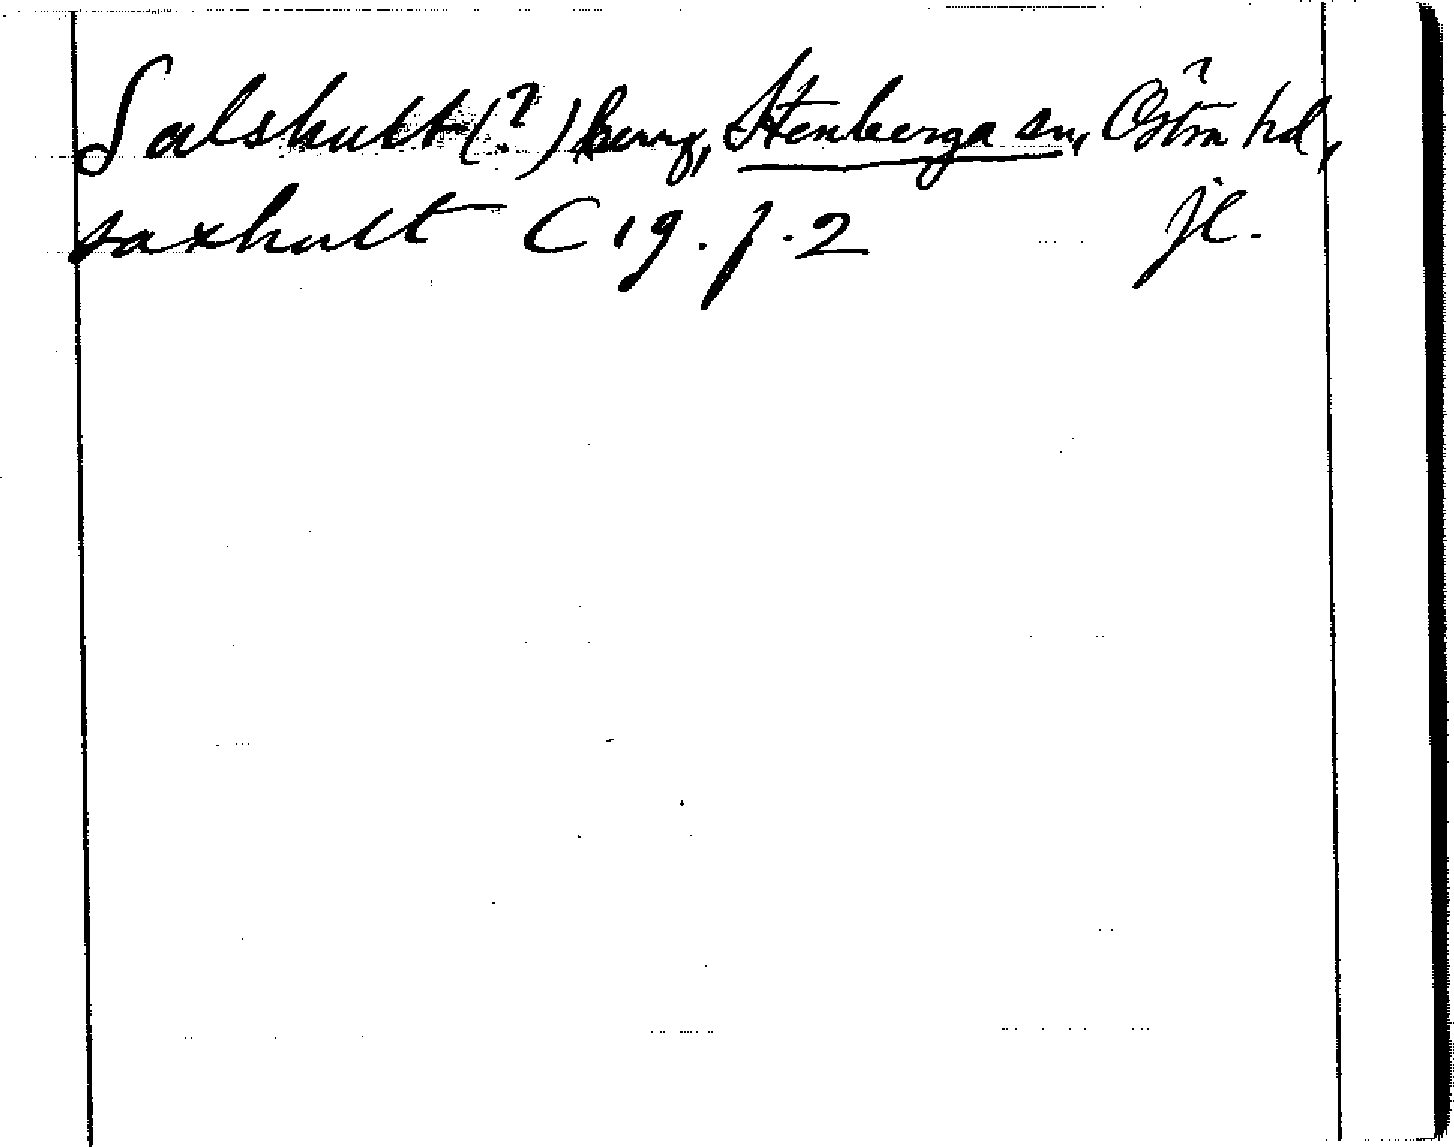 Salshult(?) herrg, Stenberga sn, Östra hd,
saxhult C 19. f. 2 Jl.